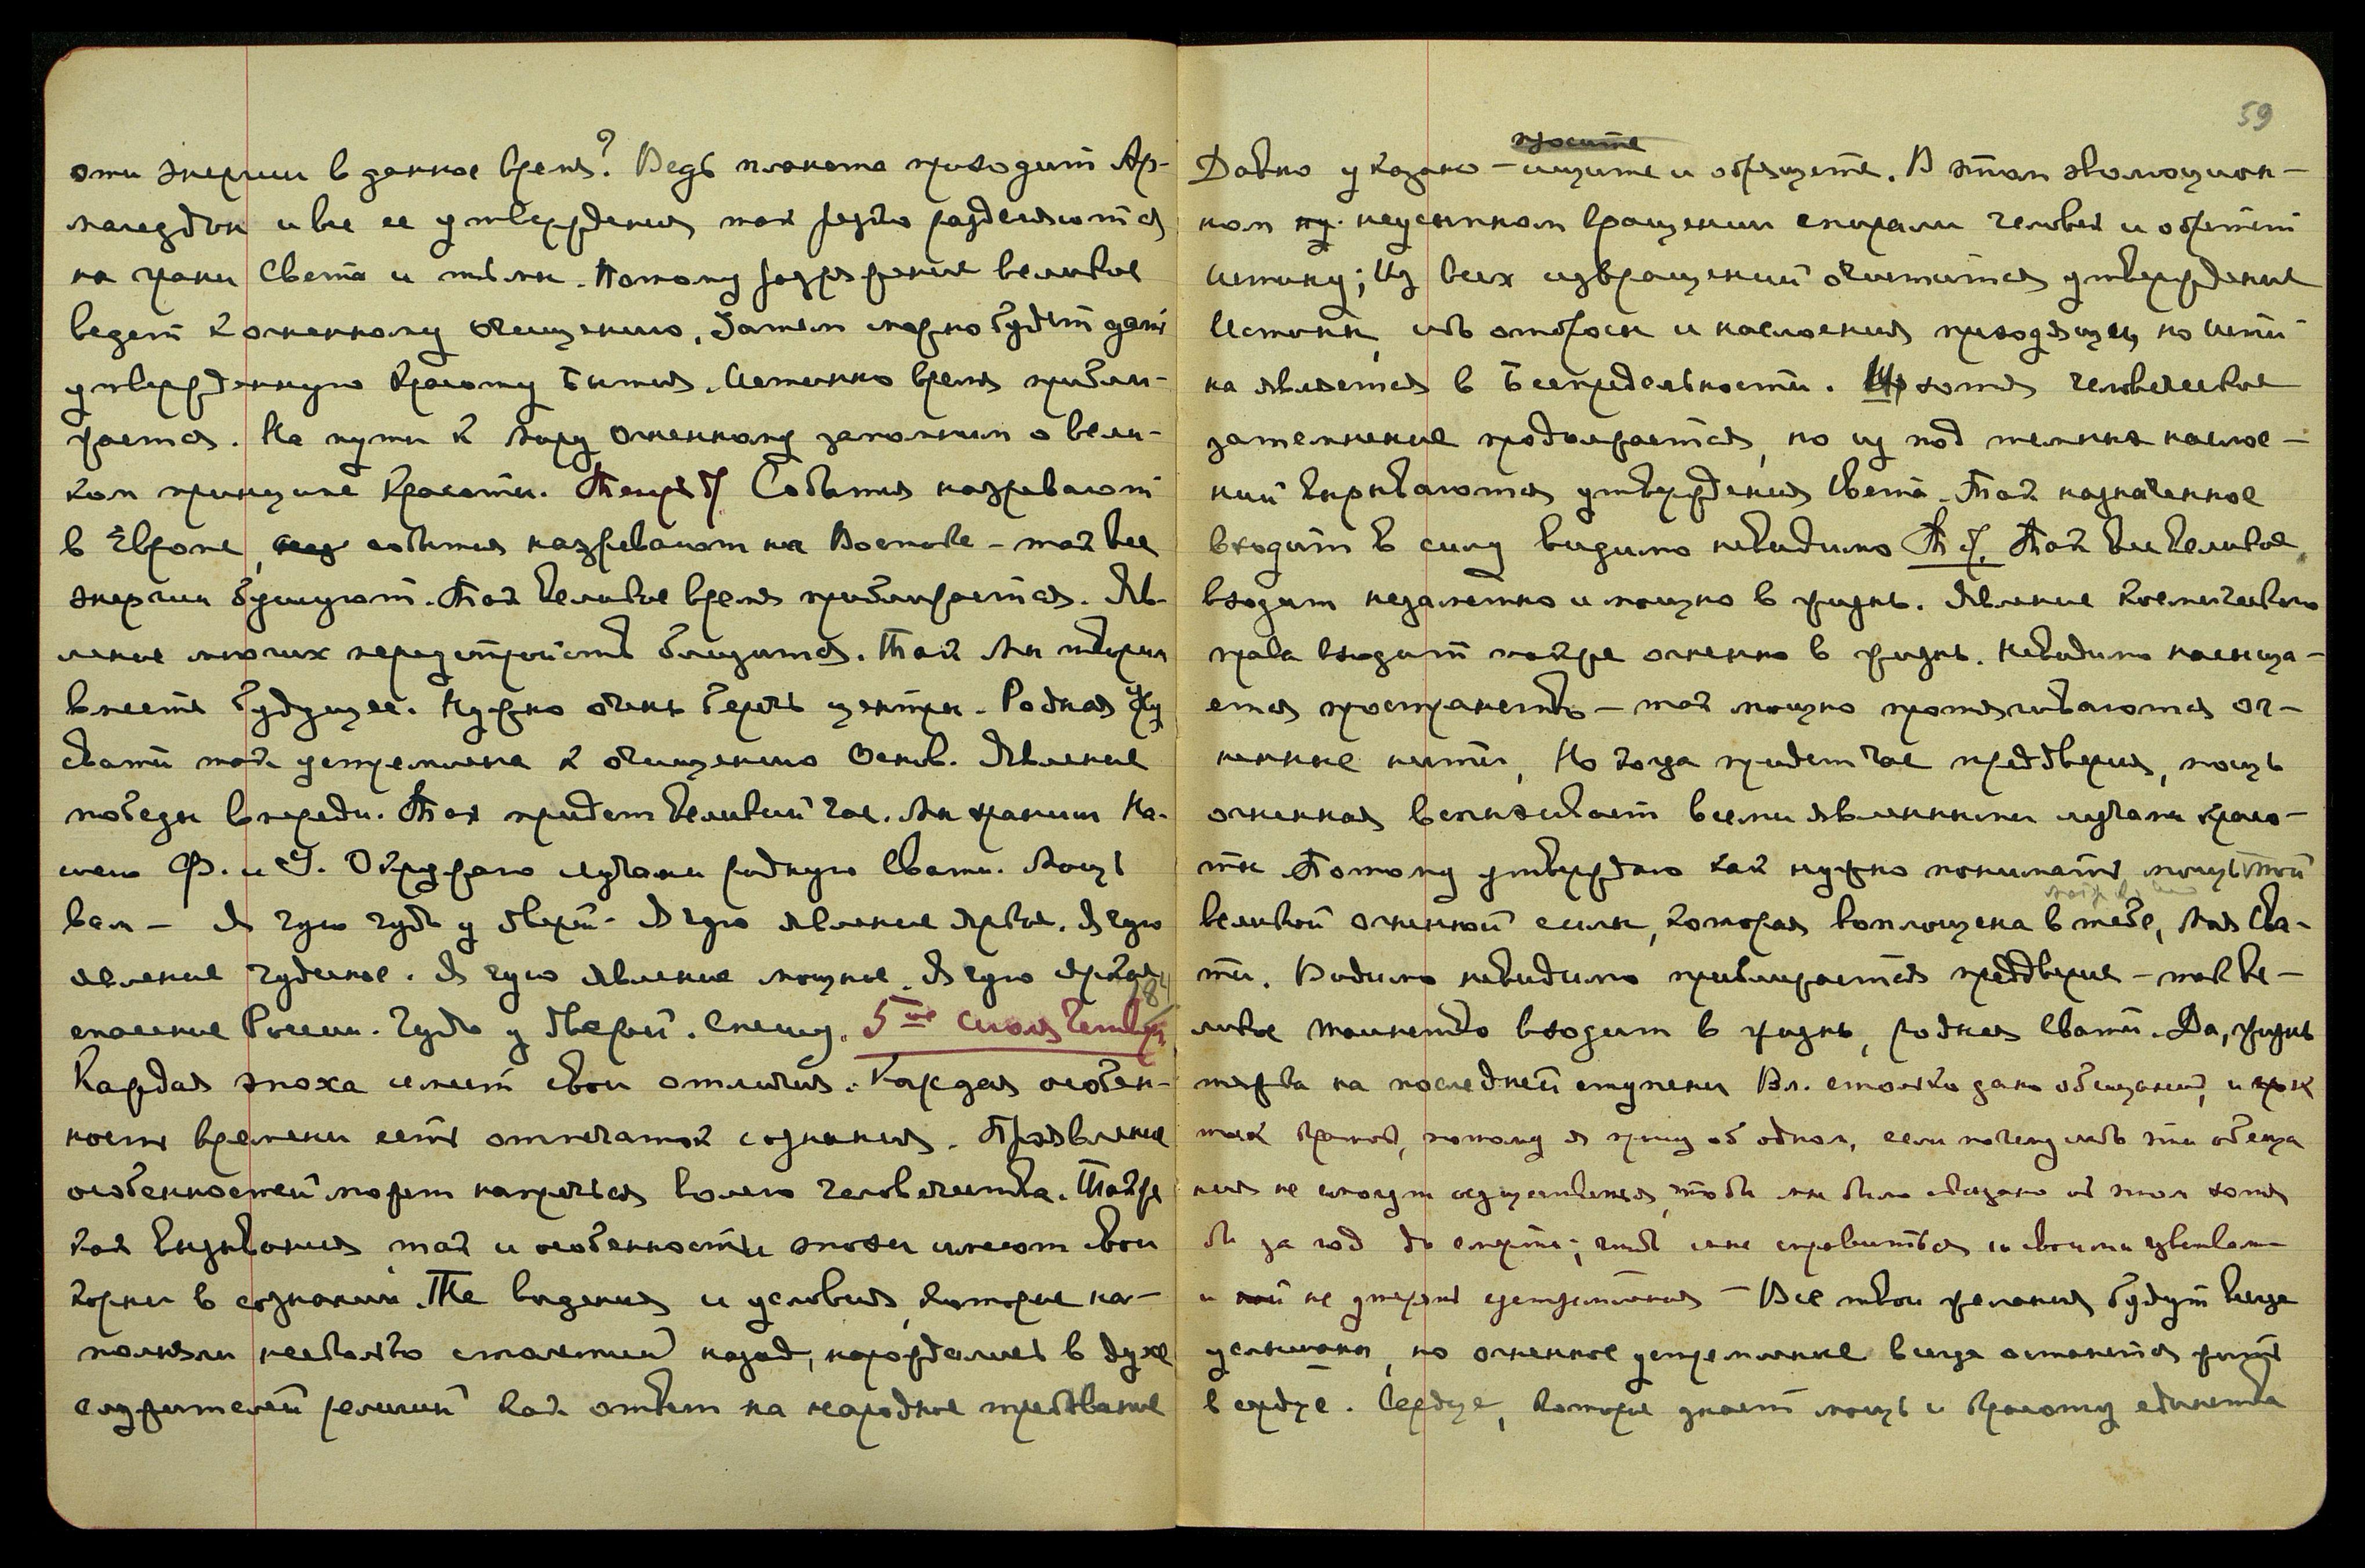 эти энергии в данное время? Ведь планета проходит Ар-
магеддон и все ее утверждения так резко разделяются
на грани Света и тьмы. Потому разряжение великое
ведет к огненному очищению. Затем можно будет дать
утвержденную красоту Бытия. Истинно время прибли-
жается. На пути к Миру Огненному запомним о вели-
ком принципе Красоты. События назревают
в Европе, события назревают на Востоке – так все
энергии бушуют. Так великое время приближается. Яв-
ление многих переустройств близится. Так Мы творим
вместе будущее. Нужно очень беречь центры. Родная
Свати так устремлена к очищению Основ. Явление
победы впереди. Так придет великий час. Мы храним На-
шего Ф. и У. Окружаю лучами родную Свати. Мощь
вам – Я чую чудо у дверей. Я чую явление яркое. Я чую
явление чудесное. Я чую явление мощное. Я чую яркое
84
спасение России. Чудо у дверей. Спешу. 5ое июля Четверг
Каждая эпоха имеет свои отличия. Каждая особен-
ность времени есть отпечаток сознания. Проявление
особенностей может напрячься волею человечества. Также
как вызывания, так и особенности эпохи имеют свои
корни в сознании. Те видения и условия, которые на-
полняли несколько столетий назад, нарождались в духе
служителей религий как ответ на народное требование
59
просите
Давно указано – ищите и обрящете. В этом эволюцион-
ном неусыпном вращении спирали человек и обретет
Истину; Из всех извращений очистится утверждение
Истины, ибо отбросы и наслоения преходящи, но Исти-
на является в Беспредельности. Хотя человеческое
затемнение продолжается, но из под темных наслое-
ний вырываются утверждения Света. Так назначенное
входит в силу видимо невидимо Так все великое
входит незаметно и мощно в жизнь. Явление космического
права входит также огненно в жизнь. Невидимо насыща-
ется пространство – так мощно протягиваются ог-
ненные нити, Но когда придет час преддверия, мощь
огненная воспылает всеми явленными лучами красо-
ты. Потому утверждаю как нужно понимать мощь той
великой огненной силы, которая воплощена в тебе, Моя Сва-
ти. Видимо невидимо приближается преддверие – так ве-
ликое таинство входит в жизнь, родная Свати. Да, жизнь
тяжка на последней ступени Вл. столько дано обещаний, и срок
так краток, потому я прошу об одном, если почему либо эти обеща
ния не смогут осуществиться, чтобы мне было сказано об этом хотя
бы за год до смерти; чтоб мне справиться со своими
и не утерять устремления – Все твои желания будут всегда
услышаны, но огненное устремление всегда останется жить
в сердце. Сердце, которое знает мощь и красоту единства